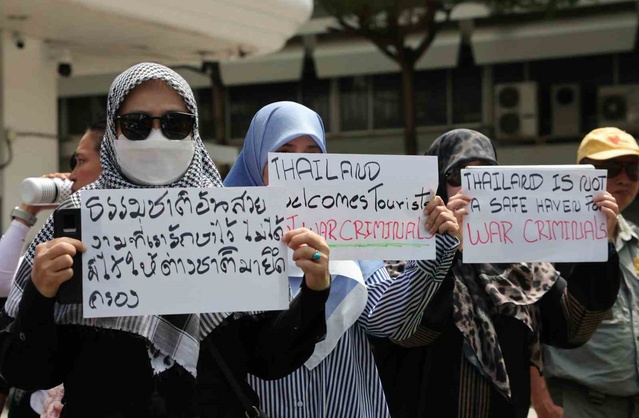 ธรรมชาติอันสวย
งามที่เรารักษาไว้ ไม่ได้
มีไว้ให้ต่างชาติมายึด
ครอง
THAILAND
elcomes Tourist
WAR CRIMINAL
THAILAND IS NOT
A SAFE HAVEN FOR
WAR CRIMINALS